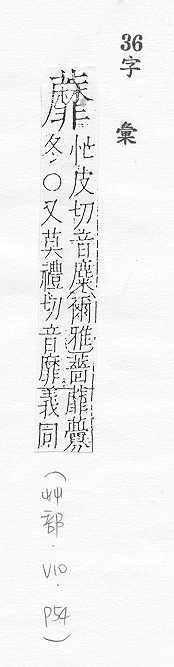 36字彙
蘼
忙皮切音麋爾雅薔蘼虋
冬○又莫禮切音靡義同
(艸部.V10.P54)